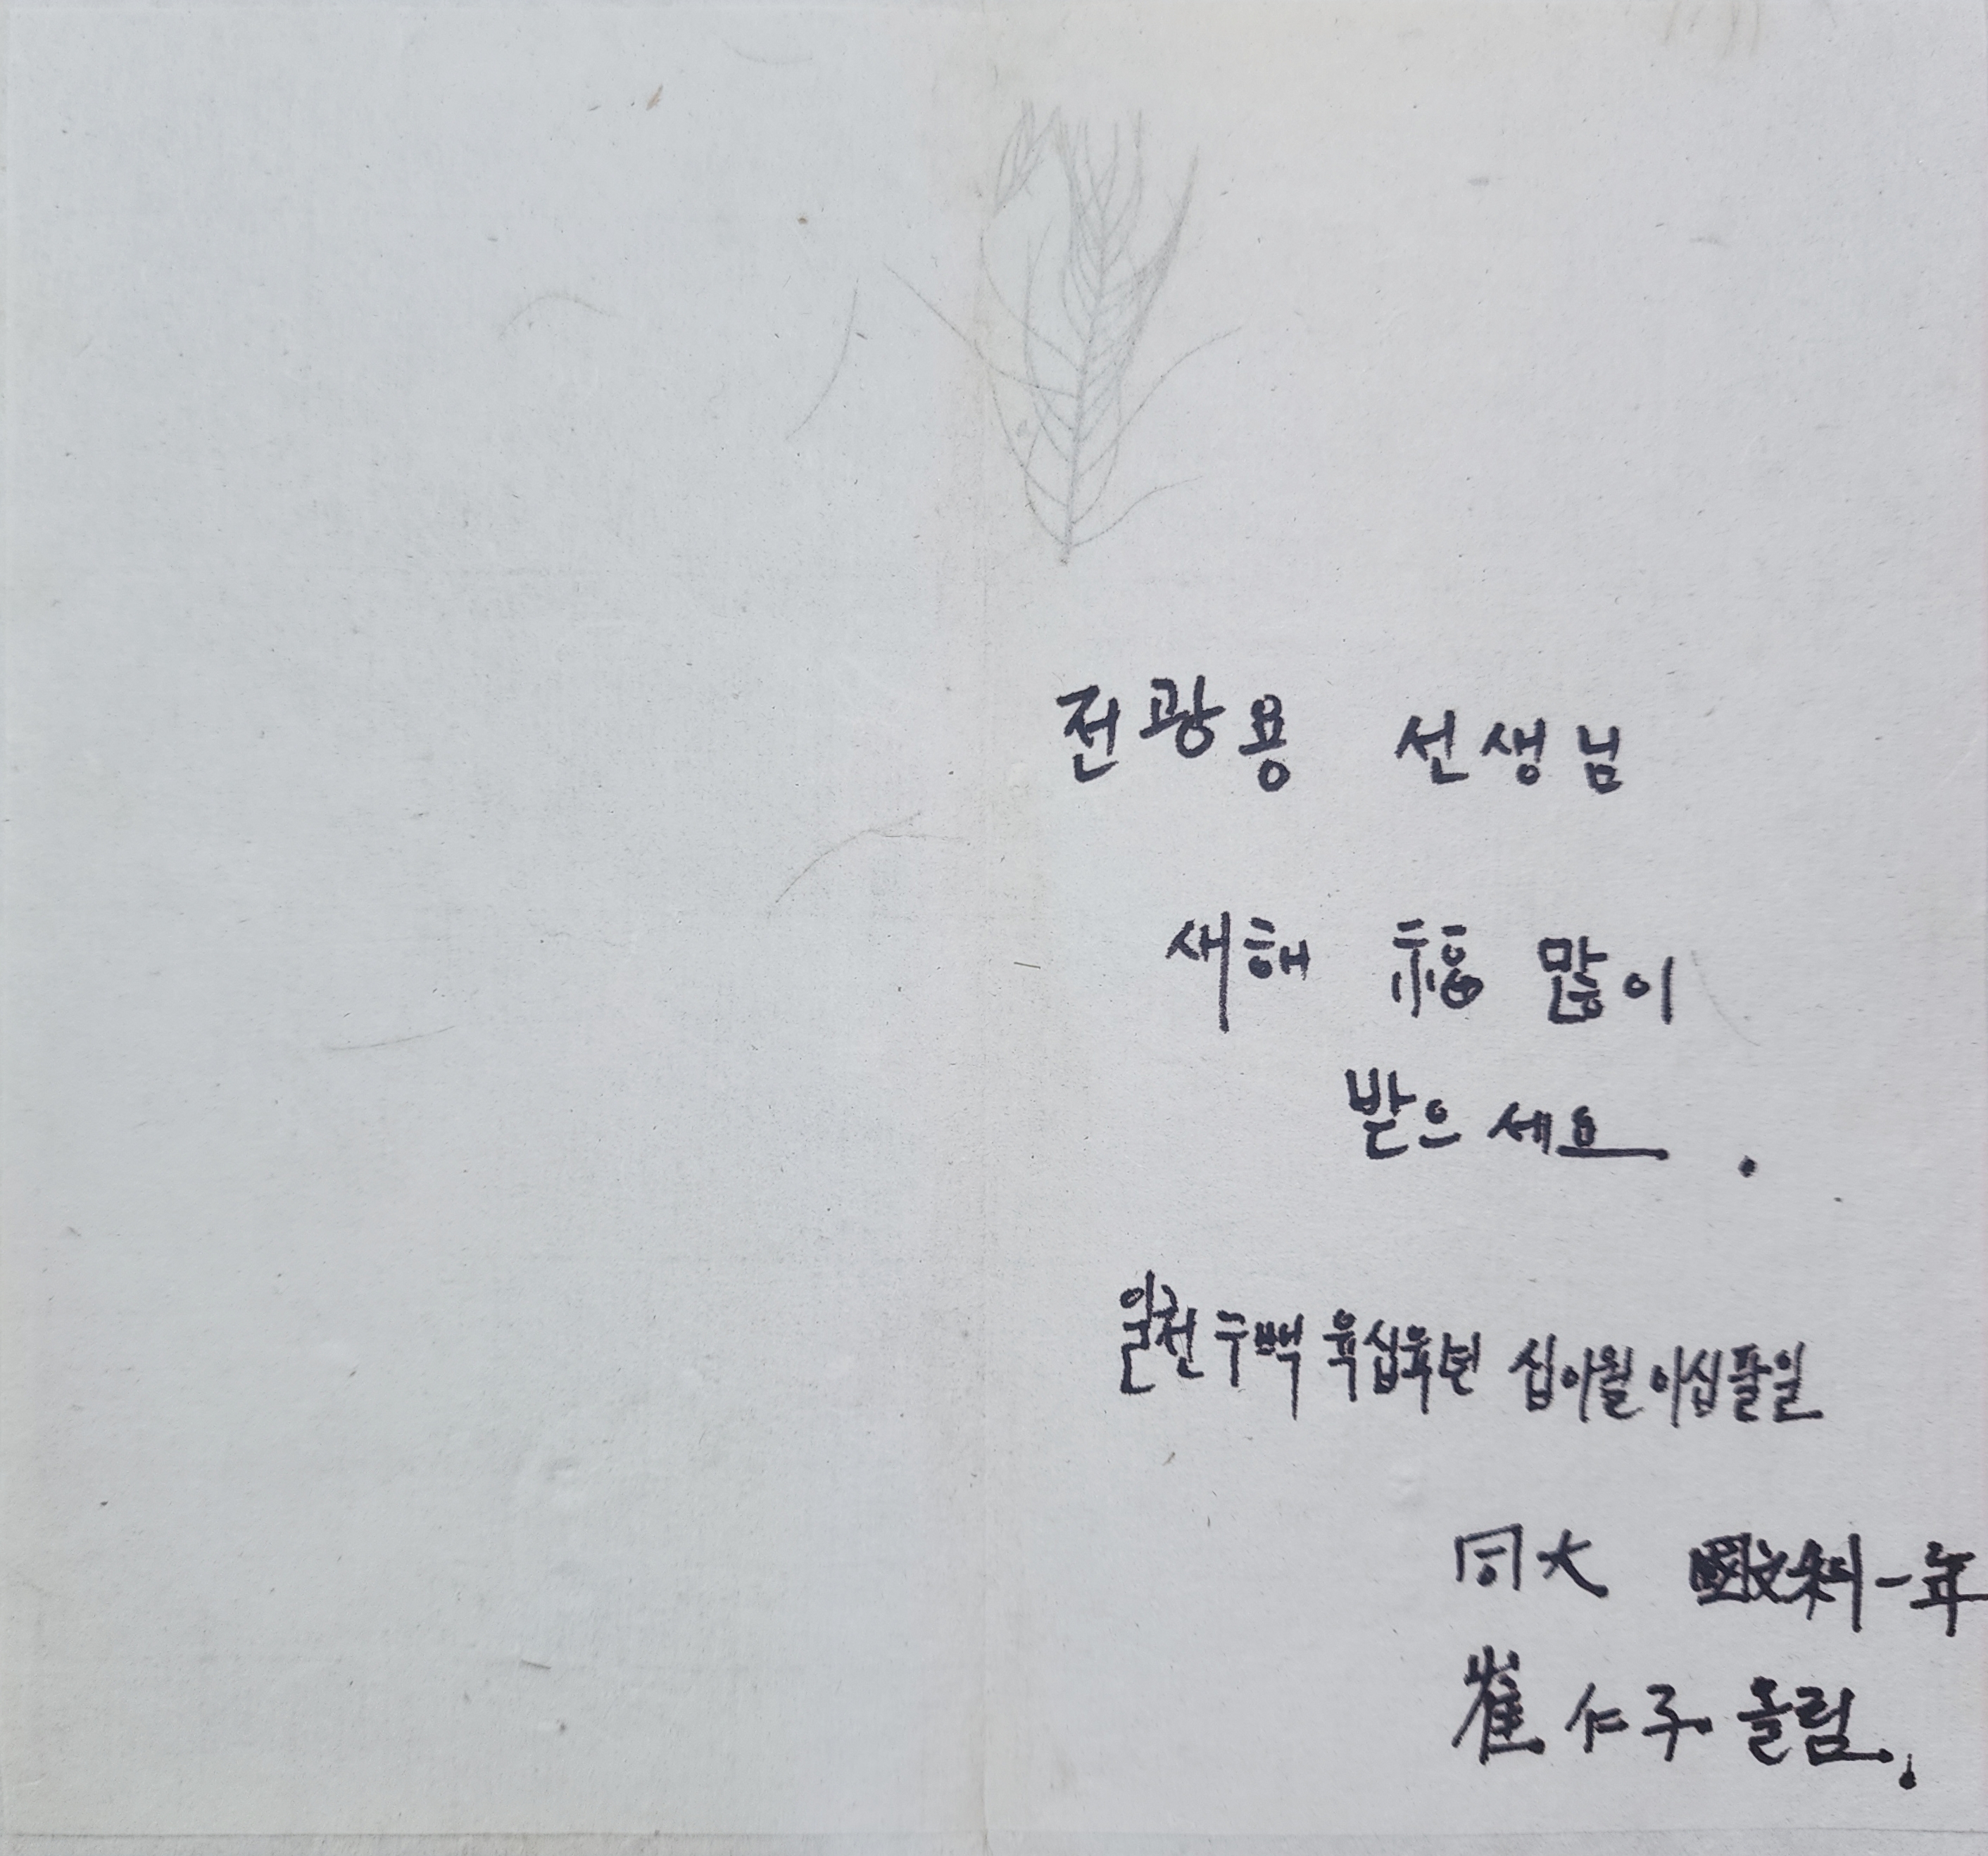 전광용 선생님
새해 福 많이
받으세요.
일천구백 육십육년 십이월 이십팔일
同大 國文科 一年
崔仁子 올림.